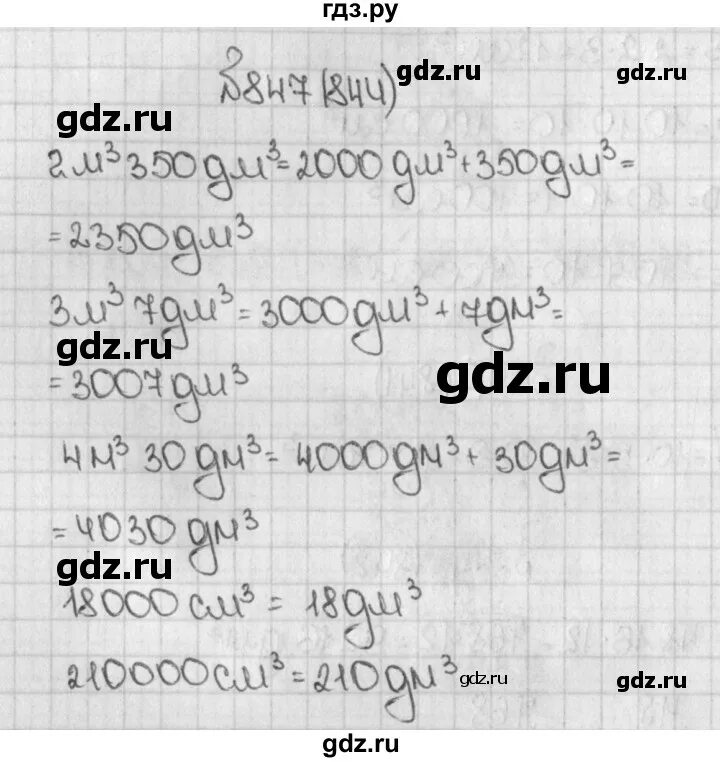 гдз.ру
№847(844)
gdz.ru
gdz.ru
gdz.ru
2м³ 350дм³=2000дм³+350дм³=
=2350дм³
gdz.ru
gdz.ru
3м³ 7дм³=3000дм³+7дм³=
gdz.ru
gdz.ru
=3007дм³
4м³ 30дм³= 4000дм³+ 30дм³=
=4030дм³
gdz.ru
gdz.ru
18000см³= 18дм³
210000см³=210дм³
gdz.ru
gdz.ru
gdz.ru